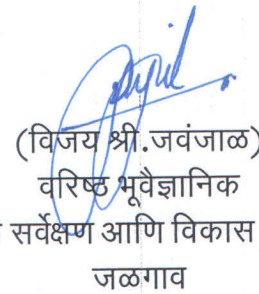 (विजय श्री.जवंजाळ)
वरिष्ठ भूवैज्ञानिक
सर्वेक्षण आणि विकास
जळगाव